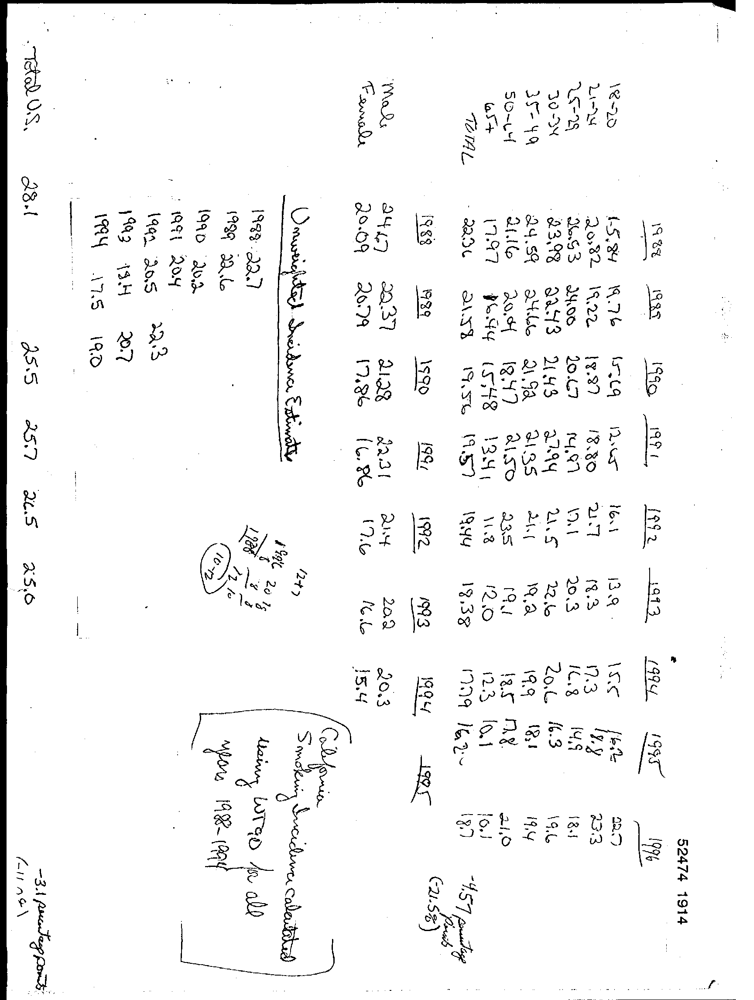 52474 1914
1988 1989 1990 1991 1992 1993 1994 1995 1996
18-20 15.84 19.76 15.69 12.65 16.1 13.9 15.5 16.2 22.7
21-24 20.82 19.22 18.87 18.80 21.7 18.3 17.3 18.8 23.3
25-29 26.53 24.00 20.67 14.97 17.1 20.3 16.8 14.9 18.1
30-34 23.98 22.43 21.43 27.94 21.5 22.6 20.6 16.3 19.6
35-49 24.59 24.66 21.92 21.35 21.1 19.2 19.9 18.1 19.4
50-64 21.16 20.04 18.47 21.50 23.5 19.1 18.5 17.8 21.0
65+ 17.97 16.44 15.48 13.41 11.8 12.0 12.3 10.1 10.1
TOTAL 22.36 21.58 19.56 19.57 19.44 18.38 17.79 16.2 18.7
-4.57 percentage points
(-21.58)
1988 1989 1990 1991 1992 1993 1994 1995
Male 24.67 22.37 21.28 22.31 21.4 20.2 20.3
Female 20.09 20.79 17.86 16.86 17.6 16.6 15.4
Unweighted Incidence Estimates
1988 22.7
1989 22.6
1990 20.2
1991 20.4
1992 20.5 22.3
1993 19.4 20.7
1994 17.5 19.0
12+7
10-12
California
Smoking Incidence calculated
using WTGD for all
years 1988-1994
Total U.S. 28.1 25.5 25.7 26.5 25.0
-3.1 percentage points